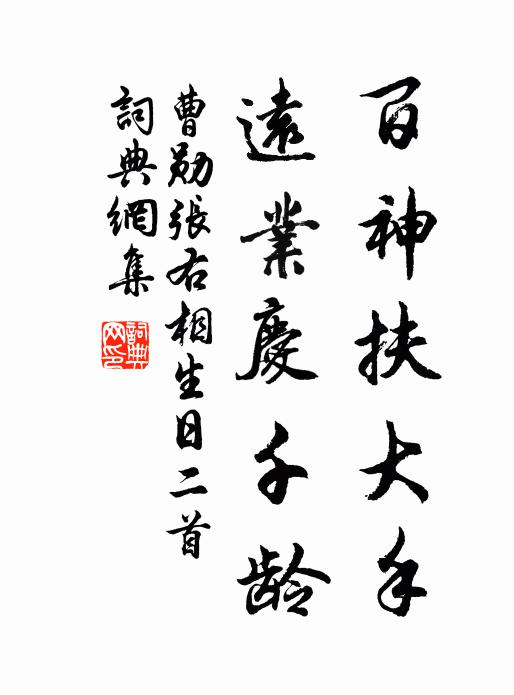 百神扶大手
遠業慶千龄
曹勛張右相生日二首
詞典網集
詞典網印